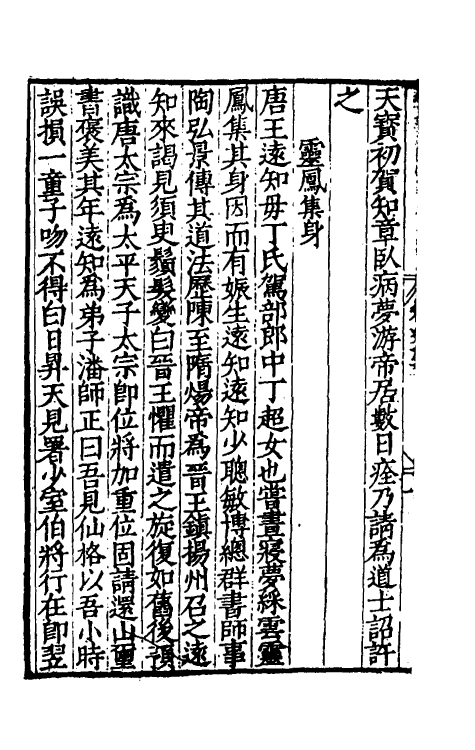 天寳初賀知章臥病夢游帝居數日痊乃請為道士詔許
之
靈鳳集身
唐王遠知毋丁氏駕部郎中丁超女也嘗晝寢夢綵雲靈
鳳集其身因而有娠生遠知遠知少聰敏博總群書師事
陶弘景傳其道法歷陳至隋煬帝為晉王鎮揚州召之遠
知來謁見須臾鬚髮變白晉王懼而遣之旋復如舊後預
識唐太宗為太平天子太宗即位將加重位固請還山璽
書褒美其年遠知為弟子潘師正曰吾見仙格以吾小時
誤損一童子吻不得白日昇天見署少室伯將行在即翌